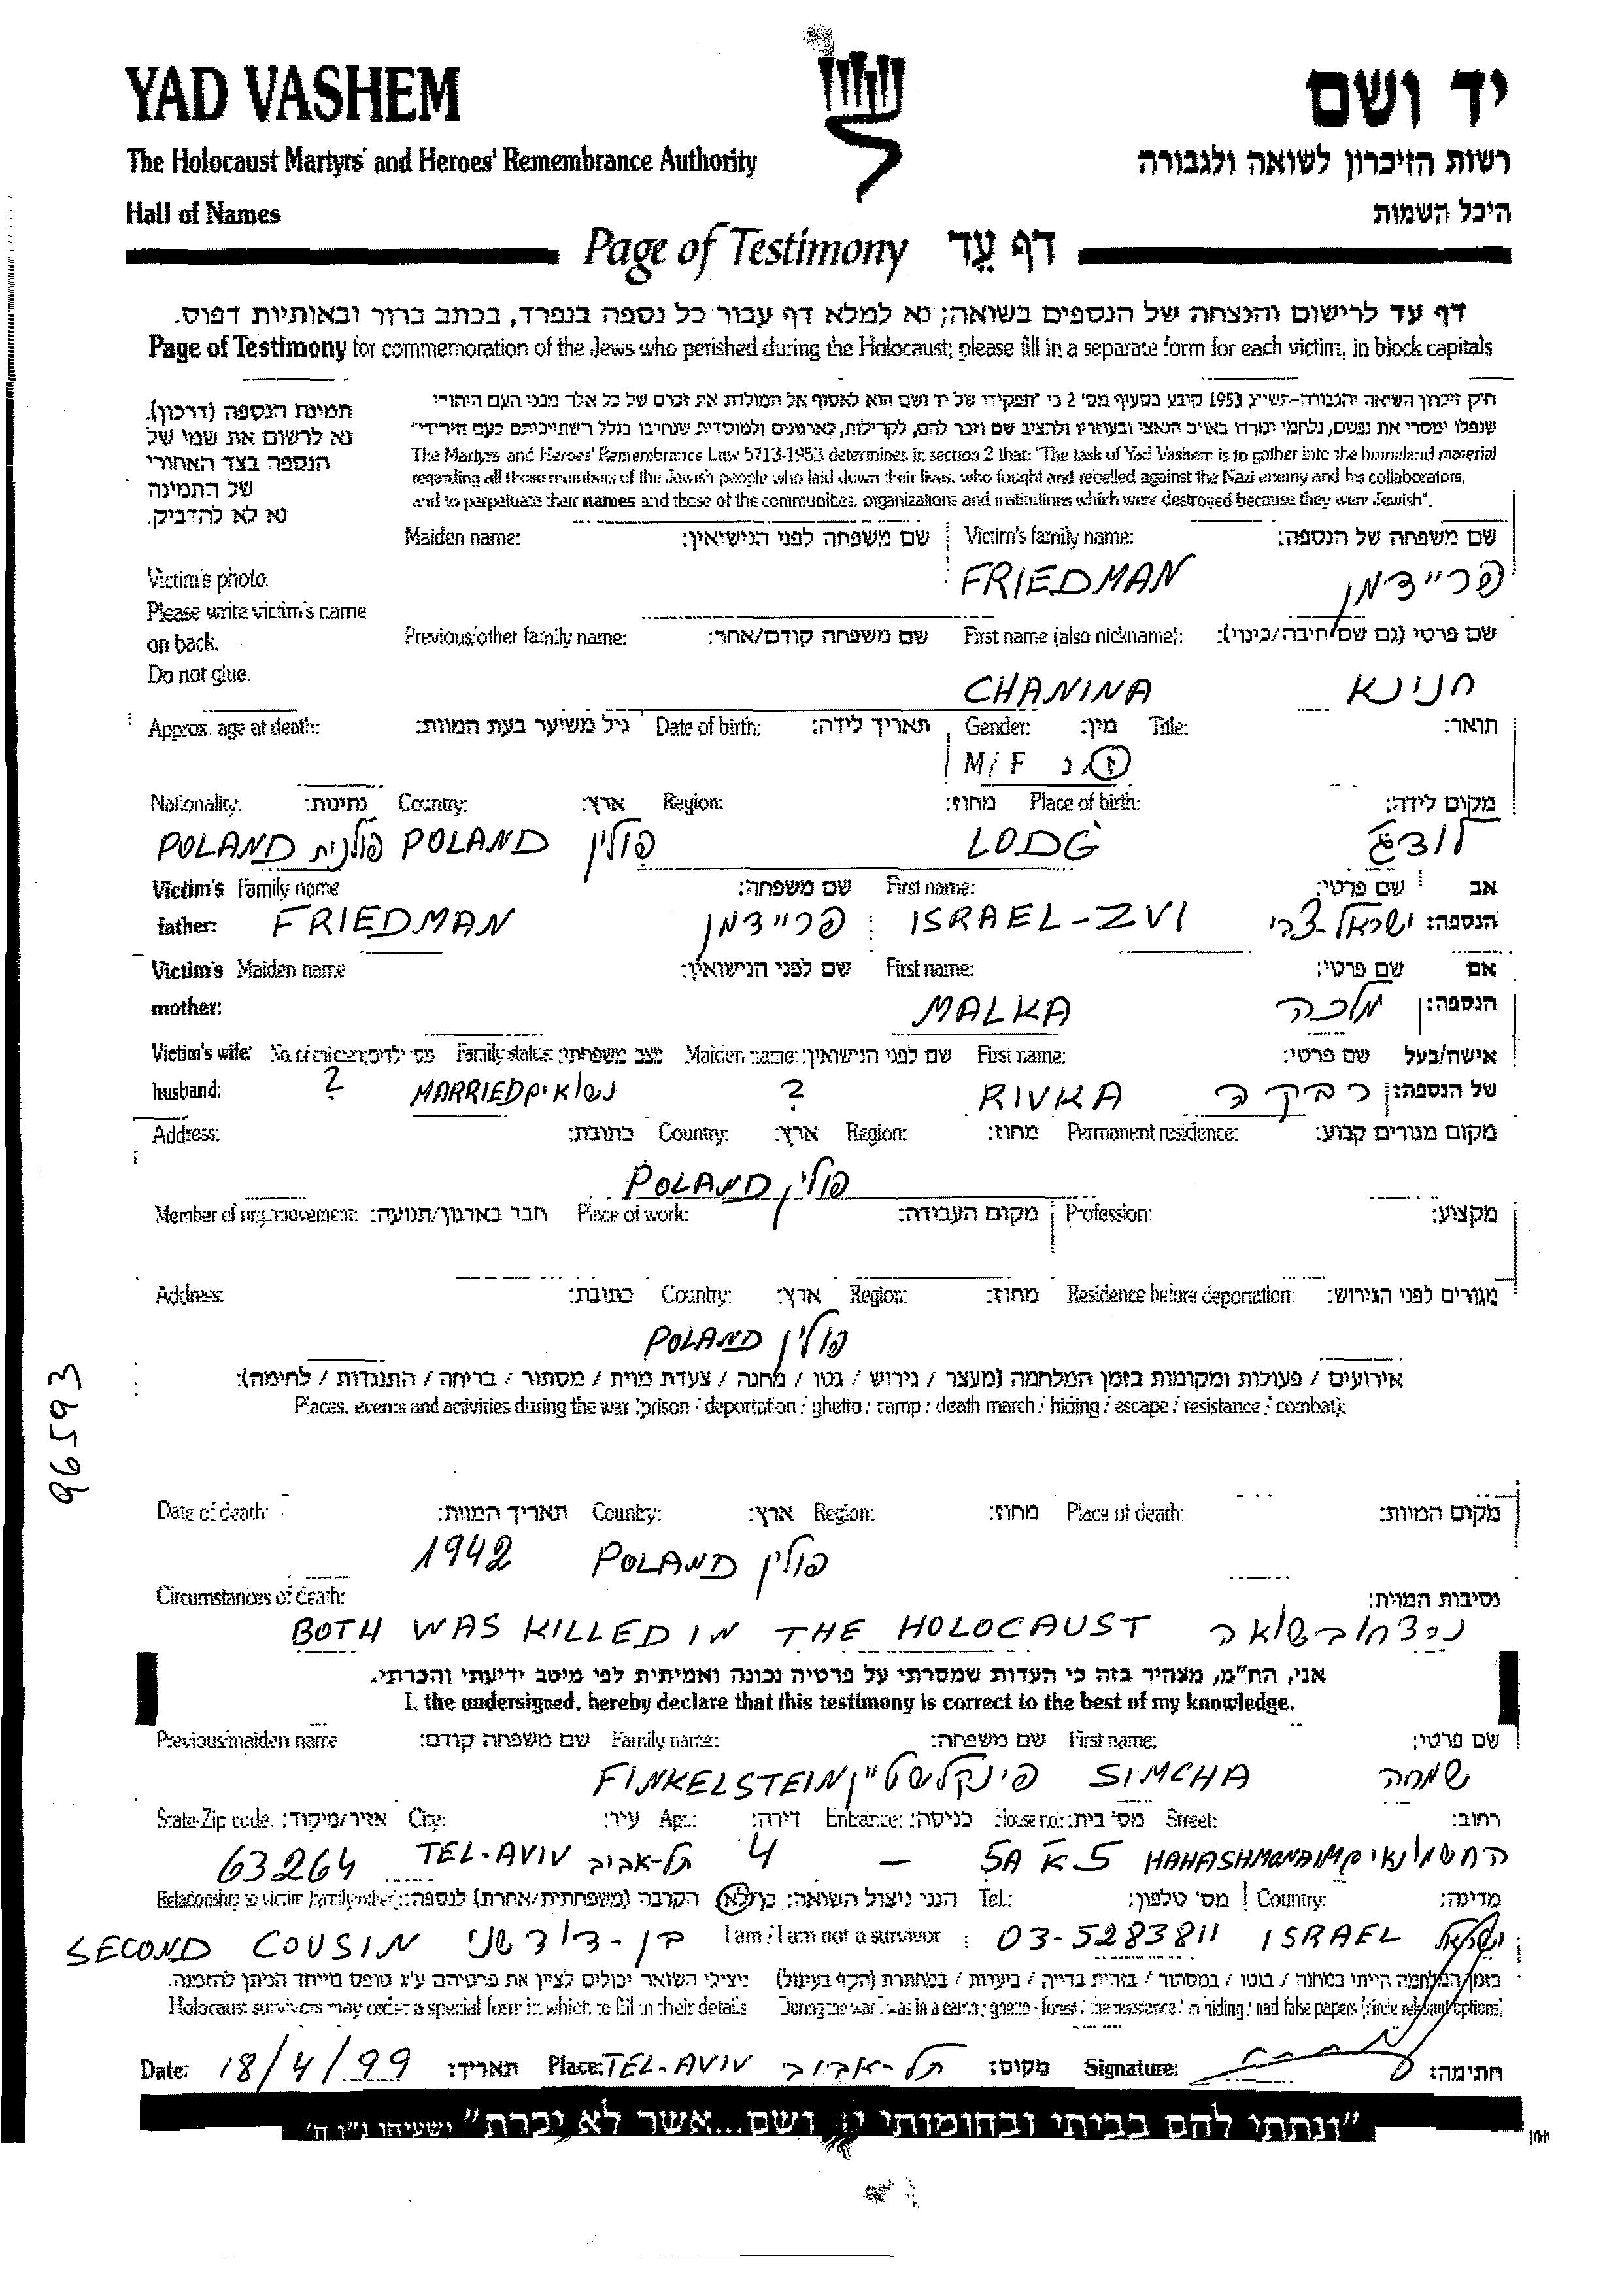 YAD VASHEM יד ושם
The Holocaust Martyrs' and Heroes' Remembrance Authority רשות הזיכרון לשואה ולגבורה
Hall of Names היכל השמות
Page of Testimony דף עֵד
דף עד לרישום והנצחה של הנספים בשואה; נא למלא דף עבור כל נספה בנפרד, בכתב ברור ובאותיות דפוס.
Page of Testimony for commemoration of the Jews who perished during the Holocaust; please fill in a separate form for each victim, in block capitals
תמינת הנספה (דרכון).
נא לרשום את שמו של
הנספה בצד האחורי
של התמינה
נא לא להדביק.
Victim's photo.
Please write victim's name
on back.
Do not glue.
חוק זיכרון השואה והגבורה-תשי"ג 1953 קובע בסעיף מס' 2 כי "תפקידו של יד ושם הוא לאסוף אל המולדת את זכרם של כל אלה מבני העם היהודי
שנפלו ומסרו את נפשם, נלחמו ומרדו באויב הנאצי ובעוזריו ולהציב שם וזכר להם, לקהילות, לארגונים ולמוסדות שנחרבו בגלל השתייכותם לעם היהודי"
The Martyrs' and Heroes' Remembrance Law 5713-1953 determines in section 2 that: "The task of Yad Vashem is to gather into the homeland material
regarding all those members of the Jewish people who laid down their lives, who fought and rebelled against the Nazi enemy and his collaborators,
and to perpetuate their names and those of the communities, organizations and institutions which were destroyed because they were Jewish".
Maiden name: שם משפחה לפני הנישואין: Victim's family name: שם משפחה של הנספה:
FRIEDMAN פריידמן
Previous/other family name: שם משפחה קודם/אחר: First name (also nickname): שם פרטי (גם שם חיבה/כינוי):
CHANINA חנינא
Approx. age at death: גיל משוער בעת המוות: Date of birth: תאריך לידה: Gender: מין: Title: תואר:
M/F ז/נ
Nationality: נתינות: Country: ארץ: Region: מחוז: Place of birth: מקום לידה:
POLAND פולנית POLAND פולין LODG' לודג'
Victim's Family name שם משפחה: First name: שם פרטי: אב
father: FRIEDMAN פריידמן ISRAEL-ZVI ישראל-צבי הנספה:
Victim's Maiden name שם לפני הנישואין: First name: שם פרטי: אם
mother: MALKA מלכה הנספה:
Victim's wife/ No. of children: מס' ילדים: Family status: מצב משפחתי: Maiden name: שם לפני הנישואין: First name: שם פרטי: אישה/בעל
husband: ? MARRIED נשואים ? RIVKA רבקה של הנספה:
Address: כתובת: Country: ארץ: Region: מחוז: Permanent residence: מקום מגורים קבוע:
POLAND פולין
Member of org./movement: חבר בארגון/תנועה: Place of work: מקום העבודה: Profession: מקצוע:
Address: כתובת: Country: ארץ: Region: מחוז: Residence before deportation: מגורים לפני הגירוש:
POLAND פולין
אירועים / פעולות ומקומות בזמן המלחמה (מעצר / גירוש / גטו / מחנה / צעדת מוות / מסתור / בריחה / התנגדות / לחימה):
Places, events and activities during the war (prison / deportation / ghetto / camp / death march / hiding / escape / resistance / combat):
96593
Date of death: תאריך המוות: Country: ארץ: Region: מחוז: Place of death: מקום המוות:
1942 POLAND פולין
Circumstances of death: נסיבות המוות:
BOTH WAS KILLED IN THE HOLOCAUST נרצחו בשואה
אני, הח"מ, מצהיר בזה כי העדות שמסרתי על פרטיה נכונה ואמיתית לפי מיטב ידיעתי והכרתי.
I, the undersigned, hereby declare that this testimony is correct to the best of my knowledge.
Previous/maiden name שם משפחה קודם: Family name: שם משפחה: First name: שם פרטי:
FINKELSTEIN פינקלשטיין SIMCHA שמחה
State/Zip code: אזור/מיקוד: City: עיר: Apt.: דירה: Entrance: כניסה: House no.: מס' בית: Street: רחוב:
63264 TEL-AVIV תל-אביב 4 – 5A א5 HAHASHMONAIM החשמונאים
Relationship to victim (family/other): הקרבה (משפחתית/אחרת) לנספה: הנני ניצול השואה: כן/לא Tel.: מס' טלפון: Country: מדינה:
SECOND COUSIN בן-דוד שני I am / I am not a survivor 03-5283811 ISRAEL ישראל
ניצולי השואה יכולים לציין את פרטיהם ע"ג טופס מייחד הניתן להזמנה. בזמן המלחמה הייתי במחנה / בגטו / במסתור / בזהות בדייה / ביערות / במחתרת (הקף בעיגול)
Holocaust survivors may order a special form in which to fill in their details During the war I was in a camp / ghetto / forest / the resistance / in hiding / had false papers (circle relevant options)
Date: 18/4/99 תאריך: Place: TEL-AVIV תל-אביב מקום: Signature: חתימה:
"ונתתי להם בביתי ובחומותי יד ושם...אשר לא יכרת" ישעיהו נ"ו ה'